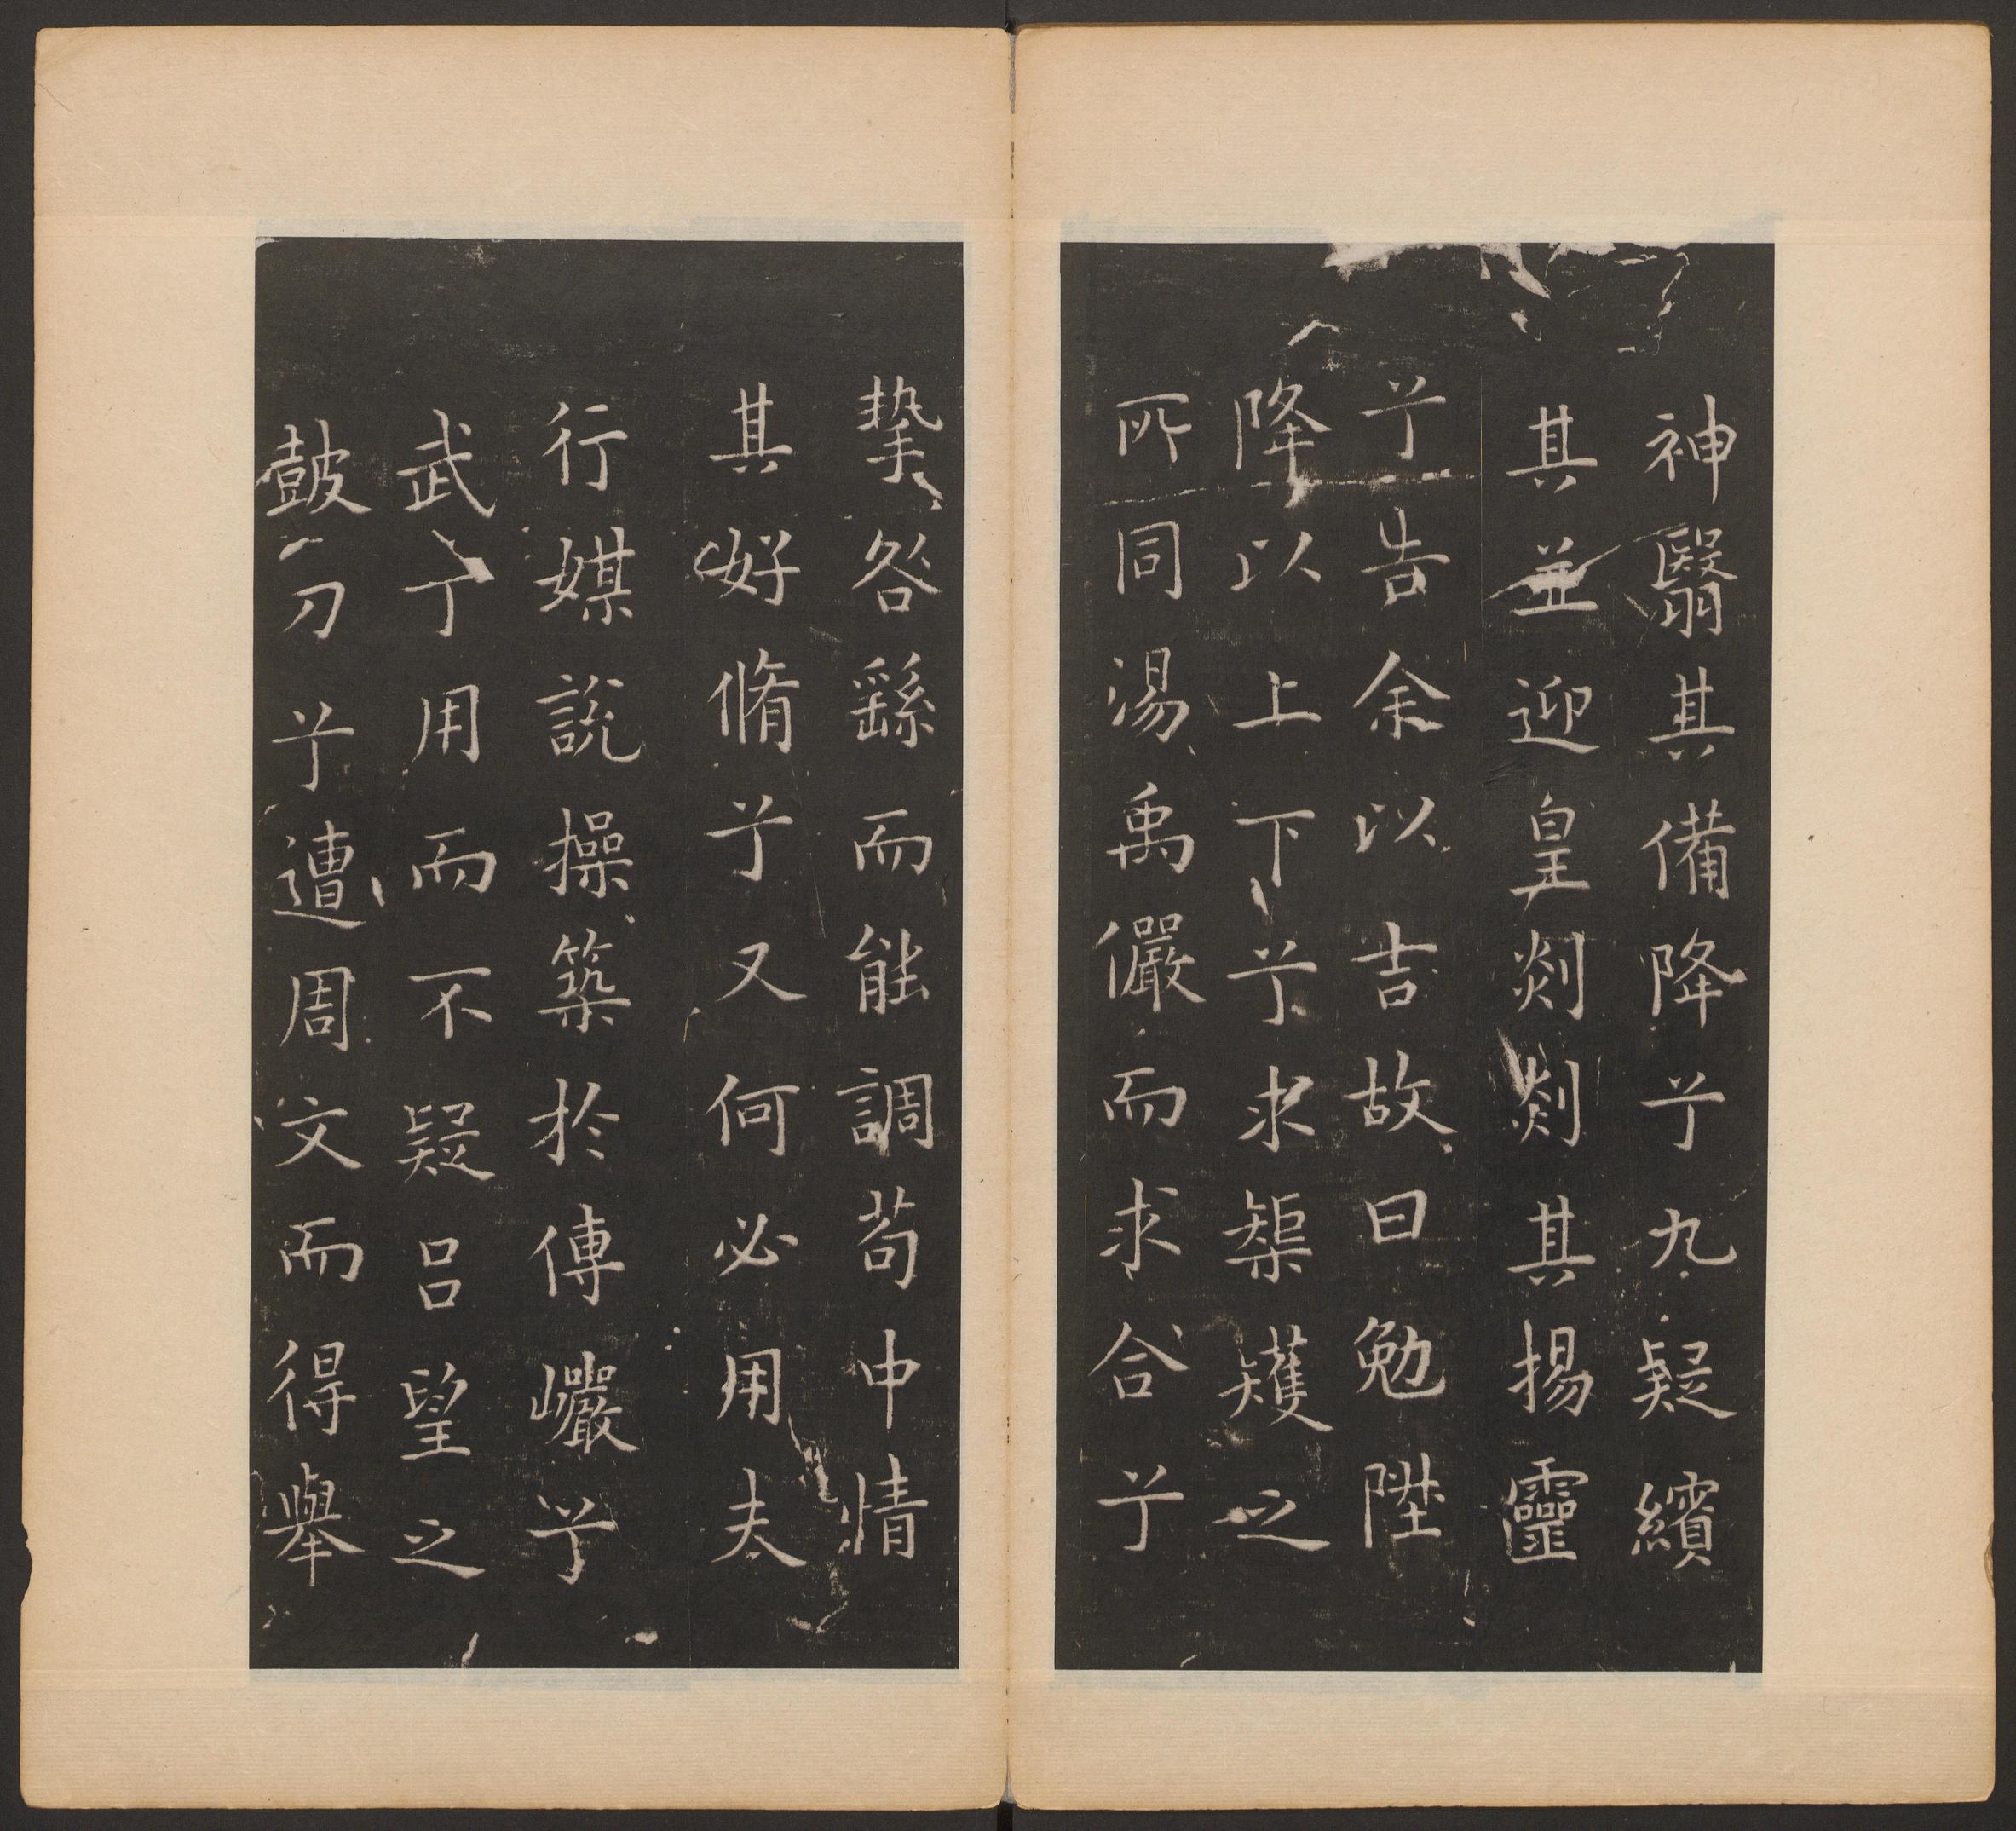 神翳其備降兮九疑繽
其並迎皇剡剡其揚靈
兮告余以吉故曰勉陞
降以上下兮求榘矱之
所同湯禹儼而求合兮
摯咎繇而能調苟中情
其好脩兮又何必用夫
行媒說操築於傅巖兮
武丁用而不疑吕望之
鼓刀兮遭周文而得舉